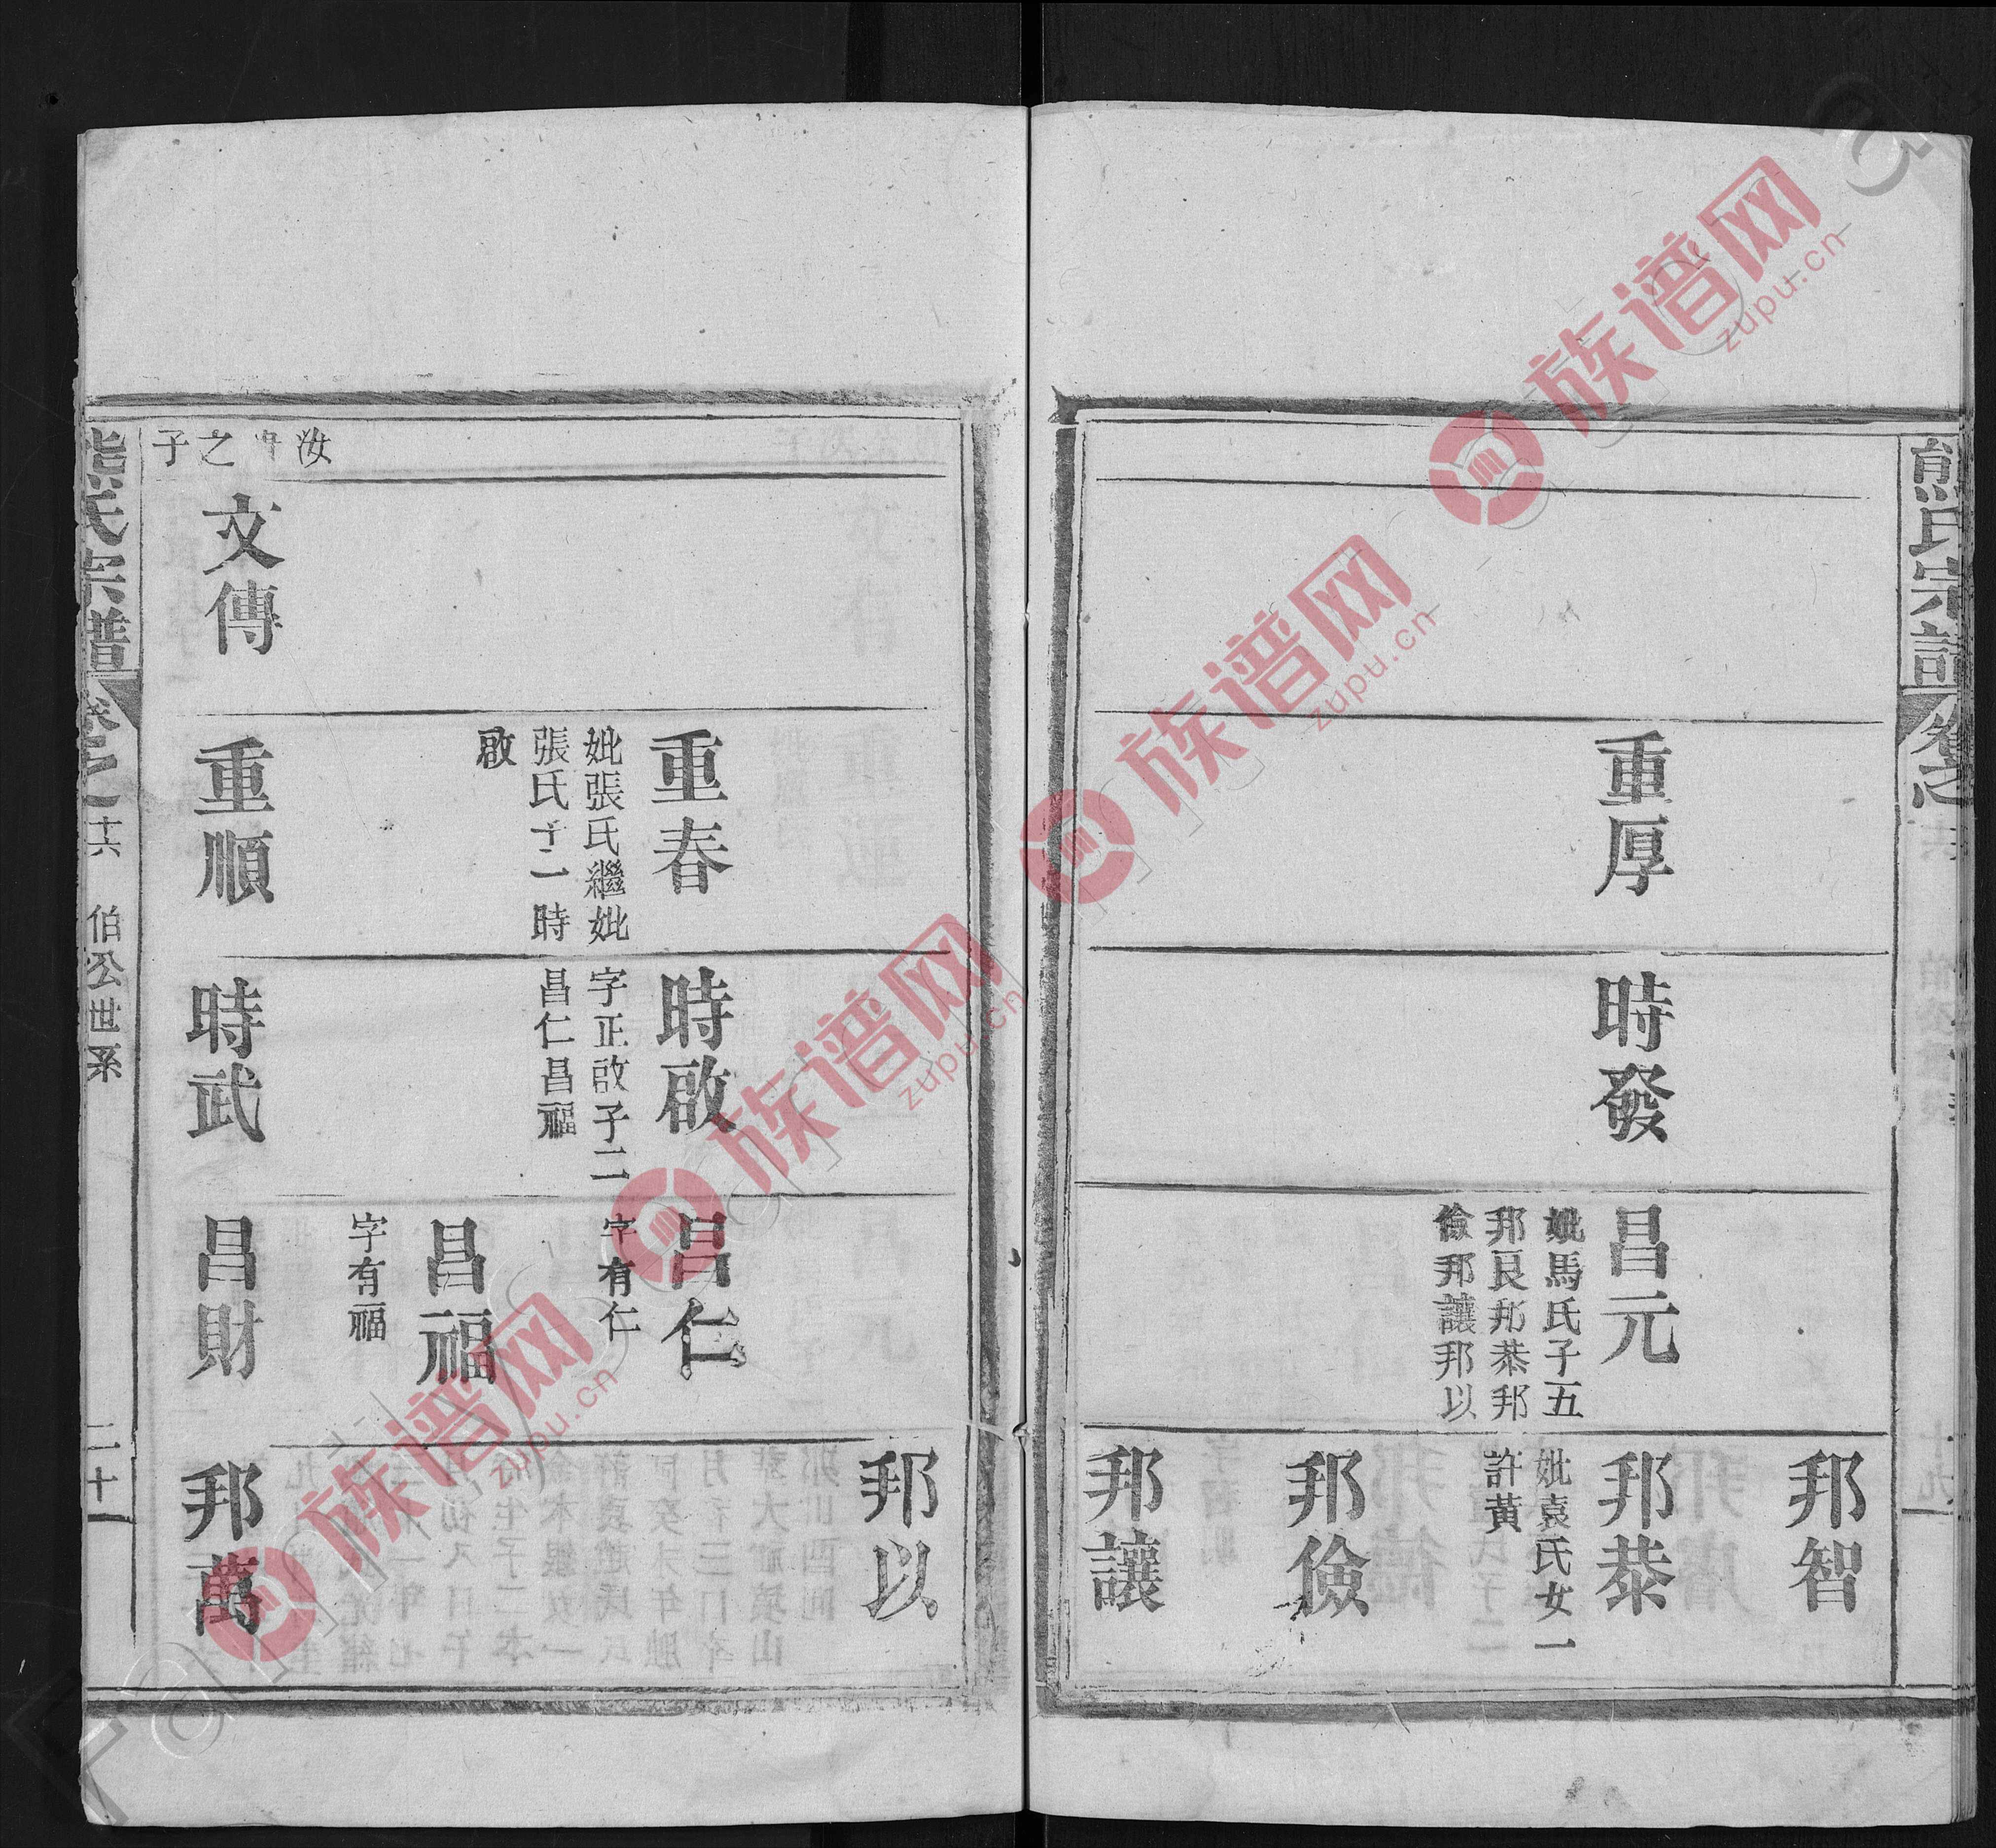 熊氏宗譜
卷之
重厚
時發
昌元
妣馬氏子五
邦良邦恭邦
儉邦讓邦以
邦智
邦恭
妣袁氏女一
許黃
邦儉
邦讓
重春
妣張氏繼妣
張氏子一時
啟
時啟
字正啟子二
昌仁昌福
昌仁
字有仁
昌福
字有福
邦以
汝
之子
文傳
重順
時武
昌財
邦萬
熊氏宗譜
卷之十六
伯公世系
二十一
族谱网
zupu.cn
族谱网
zupu.cn
族谱网
zupu.cn
族谱网
zupu.cn